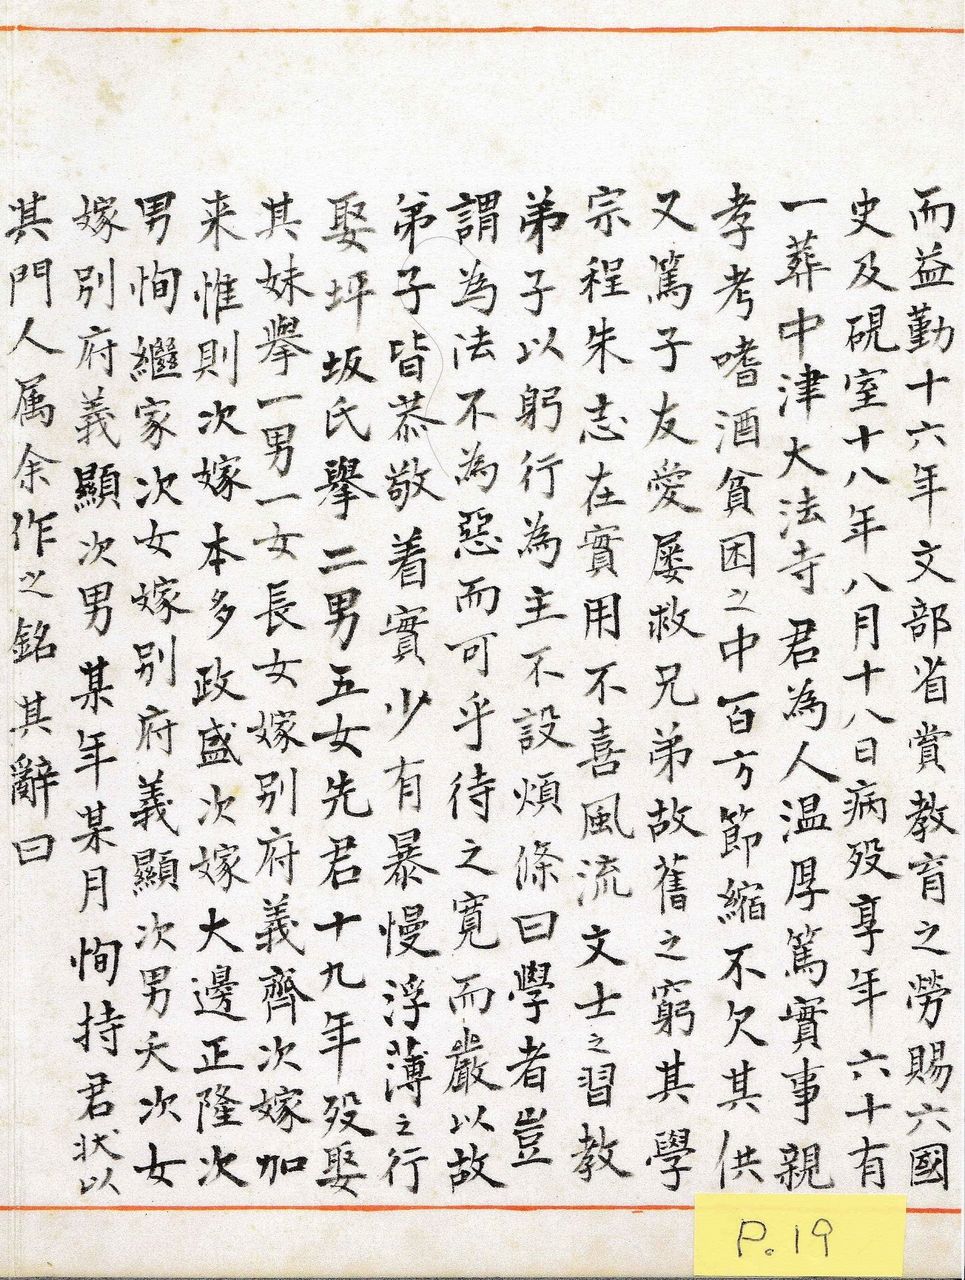 而益勤十六年文部省賞教育之勞賜六國
史及硯室十八年八月十八日病歿享年六十有
一葬中津大法寺君為人温厚篤實事親
孝考嗜酒貧困之中百方節縮不欠其供
又篤子友愛屡救兄弟故舊之窮其學
宗程朱志在實用不喜風流文士之習教
弟子以躬行為主不設煩條曰學者豈
謂為法不為惡而可乎待之寛而嚴以故
弟子皆恭敬着實少有暴慢浮薄之行
娶坪坂氏擧二男五女先君十九年歿娶
其妹擧一男一女長女嫁別府義齊次嫁加
来惟則次嫁本多政盛次嫁大邊正隆次
男恂繼家次女嫁別府義顯次男夭次女
嫁別府義顯次男某年某月恂持君状以
其門人属余作之銘其辭曰
P.19